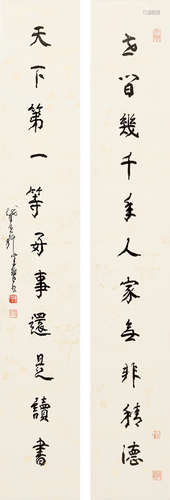 世間幾千年人家無非積德
天下第一等好事還是讀書